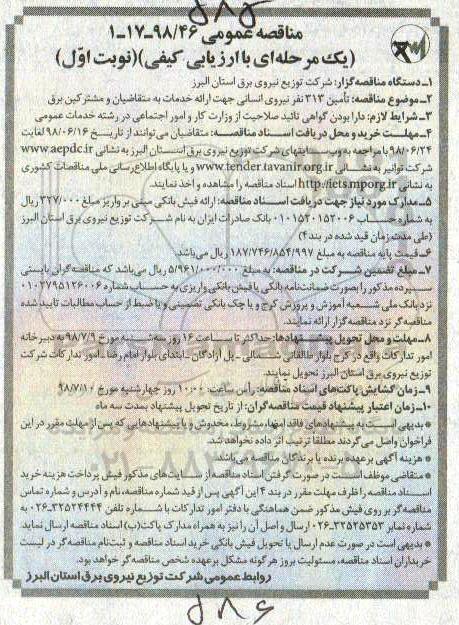 مناقصه عمومی ۹۸/۴۶-۱۷-۱
(یک مرحله‌ای با ارزیابی کیفی)(نوبت اول)
۱- دستگاه مناقصه‌گزار: شرکت توزیع نیروی برق استان البرز
۲- موضوع مناقصه: تأمین ۳۱۳ نفر نیروی انسانی جهت ارائه خدمات به متقاضیان و مشترکین برق
۳- شرایط لازم: دارا بودن گواهی تائید صلاحیت از وزارت کار و امور اجتماعی در رشته خدمات عمومی
۴- مهلت خرید و محل دریافت اسناد مناقصه: متقاضیان می‌توانند از تاریخ ۹۸/۰۶/۱۶ لغایت
۹۸/۰۶/۲۴ با مراجعه به وب سایتهای شرکت توزیع نیروی برق استان البرز به نشانی www.aepdc.ir
شرکت توانیر به نشانی www.tender.tavanir.org.ir و یا پایگاه اطلاع‌رسانی ملی مناقصات کشوری
به نشانی http://iets.mporg.ir اسناد مناقصه را مشاهده و اخذ نمایند.
۵- مدارک مورد نیاز جهت دریافت اسناد مناقصه: ارائه فیش بانکی مبنی بر واریز مبلغ ۳۲۷/۰۰۰ ریال
به شماره حساب ۰۱۰۱۵۲۰۱۵۲۰۰۶ بانک صادرات ایران به نام شرکت توزیع نیروی برق استان البرز
(طی مدت زمان قید شده در بند ۴)
۶- قیمت پایه مناقصه به مبلغ ۱۸۷/۷۴۶/۸۵۴/۹۹۷ ریال می‌باشد.
۷- مبلغ تضمین شرکت در مناقصه: به مبلغ ۵/۹۶۱/۰۰۰/۰۰۰ ریال می‌باشد که مناقصه‌گران بایستی
سپرده مذکور را بصورت ضمانت‌نامه بانکی یا فیش بانکی واریزی به حساب شماره ۰۱۰۲۷۹۵۱۲۶۰۰۶
نزد بانک ملی شعبه آموزش و پرورش کرج و یا چک بانکی تضمینی و یا ضبط از حساب مطالبات تایید شده
مناقصه‌گر نزد مناقصه‌گزار ارائه نمایند.
۸- مهلت و محل تحویل پیشنهادها: حداکثر تا ساعت ۱۶ روز سه‌شنبه مورخ ۹۸/۷/۹ به دبیرخانه
امور تدارکات واقع در کرج بلوار طالقانی شمالی - پل آزادگان - ابتدای بلوار امام رضا - امور تدارکات شرکت
توزیع نیروی برق استان البرز تحویل نمایند.
۹- زمان گشایش پاکت‌های اسناد مناقصه: رأس ساعت ۱۰:۰۰ روز چهارشنبه مورخ ۹۸/۷/۱۰
۱۰- زمان اعتبار پیشنهاد قیمت مناقصه‌گران: از تاریخ تحویل پیشنهاد بمدت سه ماه
* بدیهی است به پیشنهادهای فاقد امضا، مشروط، مخدوش و یا پیشنهادهایی که پس از مهلت مقرر در این
فراخوان واصل می‌گردند مطلقا ترتیب اثر داده نخواهد شد.
* هزینه آگهی بر عهده برنده یا برندگان مناقصه می‌باشد.
* متقاضی موظف است در صورت گرفتن اسناد مناقصه از سایت‌های مذکور فیش پرداخت هزینه خرید
اسناد مناقصه را ظرف مهلت مقرر در بند ۴ این آگهی پس از قید شماره مناقصه، نام و آدرس و شماره تماس
مناقصه‌گر بر روی فیش مذکور ضمن هماهنگی با دفتر امور تدارکات با شماره تلفن ۳۲۵۲۴۴۴۴-۰۲۶ به
شماره نمابر ۳۲۵۲۵۳۵۳-۰۲۶ ارسال و اصل آن را نیز به همراه مدارک پاکت (ب) اسناد مناقصه ارسال نماید
* بدیهی است در صورت عدم ارسال یا تحویل فیش بانکی خرید اسناد مناقصه و ثبت‌نام مناقصه‌گر در لیست
خریداران اسناد مناقصه، مسئولیت بروز هر گونه مشکل بر عهده شخص مناقصه‌گر خواهد بود.
روابط عمومی شرکت توزیع نیروی برق استان البرز